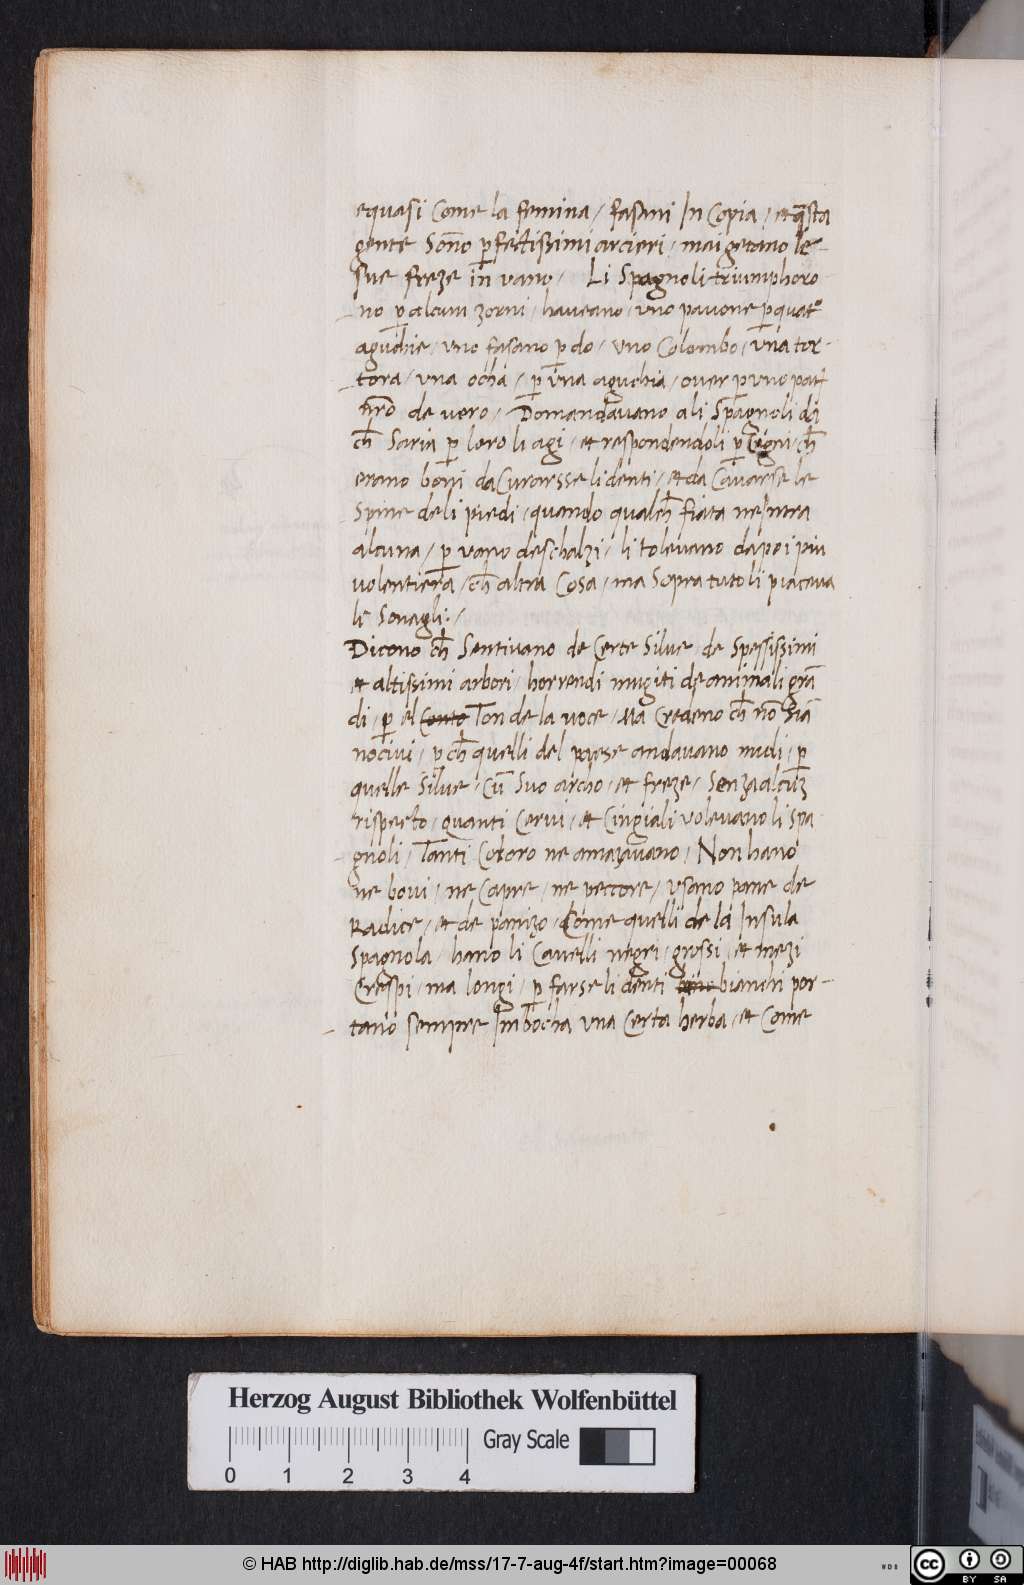 equasi Come la femina / fasani In Copia / et q̃sta
gente Son̄o p̱fectissimi arcieri / mai getano le-
sue freze in vano / Li Spagnoli triumphoro
no p̱ alcuni zorni / haveano / vno pavone p̱ quat°
aguchie / vno fasano p̱ do / vno Colombo / vna tor-
tora / vna ocha / p̱ vna aguchia / over p̱ vno pat
nr̃o de vero / Domandavano a li Spagnoli da
ch̄ Saria p̱ loro li agi / et respondendoli p̱ Cigni / ch̄
erano boni da Curarsse li denti / et da Cavarse le
Spine de li piedi / quando qualch̄ fiata ne Intra
alcuna / p̱ vano deschalzi / li tolevano dapoi piu
volentiera / ch̄ altra Cosa / ma Sopra tuto li piaceva
li Sonagli: /
Dicono ch̄ Sentivano de Certe Silve / de Spessissimi
et altissimi arbori / horrendi mugiti de animali grã
di / p̱ el Conto Ton de la voce / Ma Credeno ch̄ nō Siã
nocivi / p̱ ch̄ quelli del paese andavano nudi / p̱
quelle Silve / Cū Suo archo / et freze / Senza alcūz
rispecto / quanti Cervi / et Cingiali volevano li Spa
gnoli / Tanti Coloro ne amazavano / Non hano
ne bovi / ne Capre / ne pecore / vsano pane de
Radice / et de panizo / Come quelli de la Insula
Spagnola / hano li Cavelli negri / grossi / et mezi
Crespi / ma longi / p̱ farse li denti bianchi por-
tano sempre In bocha vna Certa herba / et Come
Herzog August Bibliothek Wolfenbüttel
Gray Scale
0 1 2 3 4
© HAB http://diglib.hab.de/mss/17-7-aug-4f/start.htm?image=00068
WDB
cc BY SA